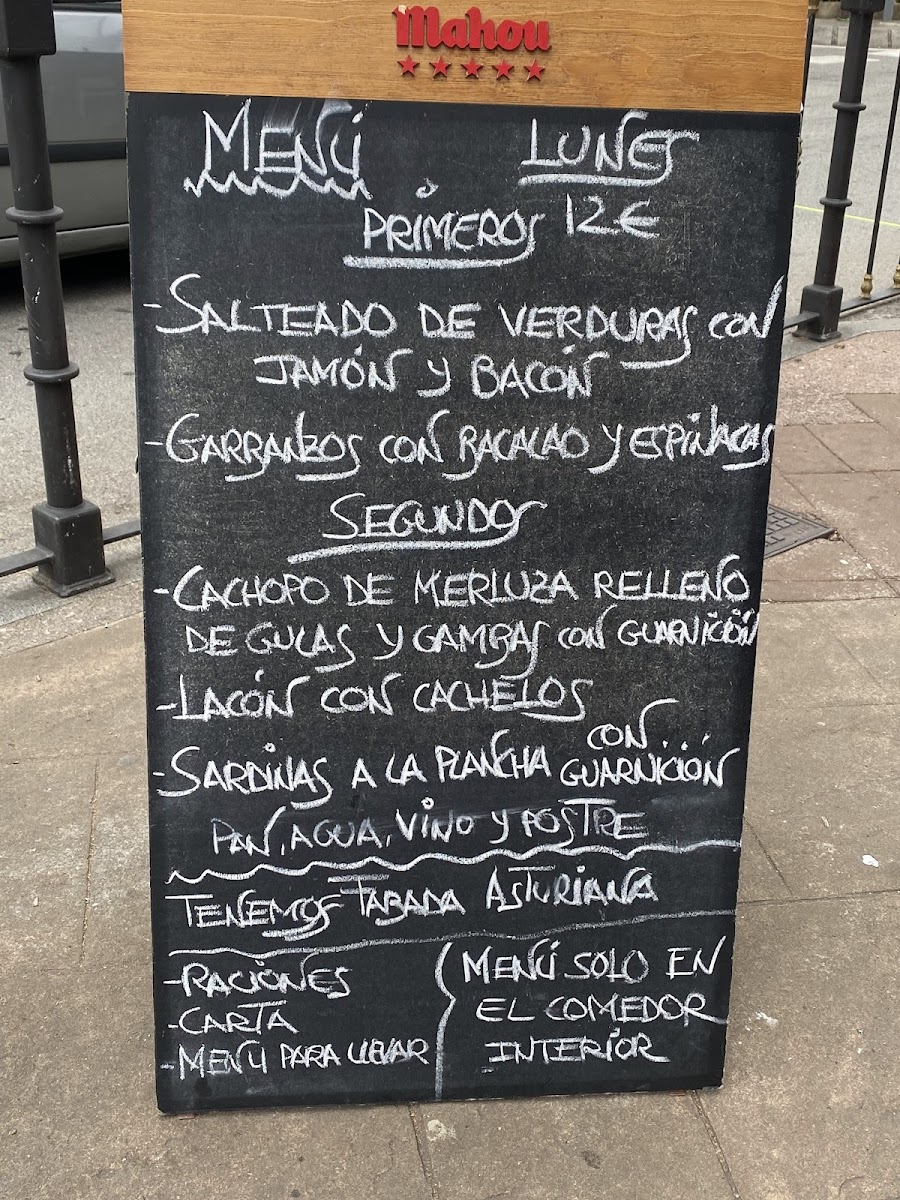 Mahou
MENÚ LUNES
PRIMEROS 12€
-SALTEADO DE VERDURAS CON
JAMÓN Y BACÓN
-GARBANZOS CON BACALAO Y ESPINACAS
SEGUNDOS
-CACHOPO DE MERLUZA RELLENO
DE GULAS Y GAMBAS CON GUARNICIÓN
-LACÓN CON CACHELOS
-SARDINAS A LA PLANCHA CON GUARNICIÓN
PAN, AGUA, VINO Y POSTRE
TENEMOS FABADA ASTURIANA
-RACIONES
-CARTA
-MENU PARA LLEVAR
MENÚ SOLO EN
EL COMEDOR
INTERIOR